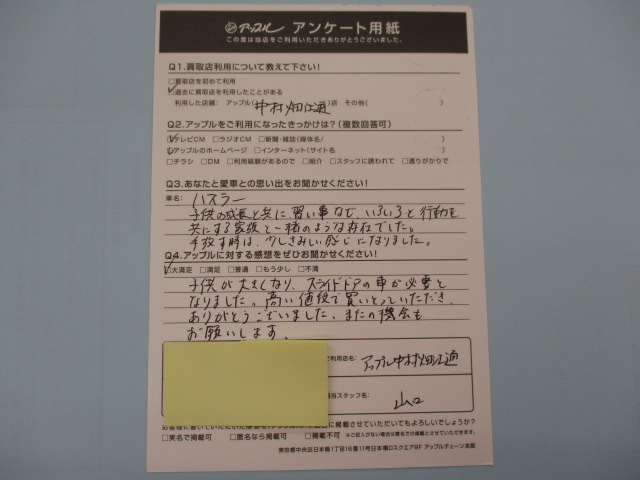 アップル アンケート用紙
この度は当店をご利用いただきありがとうございました。
Q1.買取店利用について教えて下さい!
□買取店を初めて利用
☑過去に買取店を利用したことがある
利用した店舗: アップル(中村畑江通)店 その他( )
Q2.アップルをご利用になったきっかけは?(複数回答可)
☑テレビCM □ラジオCM □新聞・雑誌(媒体名/ )
☑アップルのホームページ □インターネット(サイト名 )
□チラシ □DM □利用経験があるので □紹介 □スタッフに誘われて □通りがかりで
Q3.あなたと愛車との思い出をお聞かせください!
車名: ハスラー
子供の成長と共に、習い事など、いろいろと行動を
共にする家族と一緒のような存在でした。
手放す時は、少しさみしい感じになりました。
Q4.アップルに対する感想をぜひお聞かせください!
☑大満足 □満足 □普通 □もう少し □不満
子供が大きくなり、スライドドアの車が必要と
なりました。高い値段で買いとっていただき、
ありがとうございました。またの機会も
お願いします。
ご利用店名: アップル中村畑江通
担当スタッフ名: 山口
に掲載させていただいてもよろしいでしょうか?
□実名で掲載可 □匿名なら掲載可 □掲載不可 ※ご記入がない場合は匿名での掲載とさせていただきます。
東京都中央区日本橋1丁目16番11号日本橋Dスクエア8F アップルチェーン本部